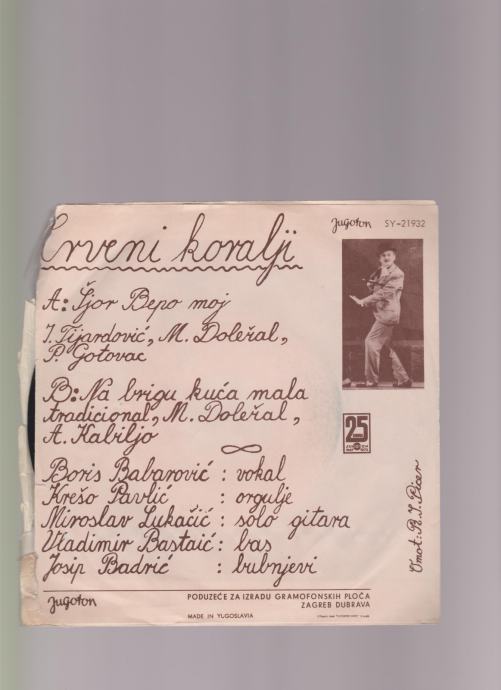 Jugoton SY-21932
Crveni koralji
A: Šjor Bepo moj
I. Tijardović, M. Doležal,
P. Gotovac
B: Na brigu kuća mala
tradicional, M. Doležal,
A. Kabiljo
25
Boris Babarović : vokal
Krešo Pavlić : orgulje
Miroslav Lukačić : solo gitara
Vladimir Bastaić : bas
Josip Badrić : bubnjevi
Omot: R. I. Picer
Jugoton
PODUZEĆE ZA IZRADU GRAMOFONSKIH PLOČA
ZAGREB DUBRAVA
MADE IN YUGOSLAVIA